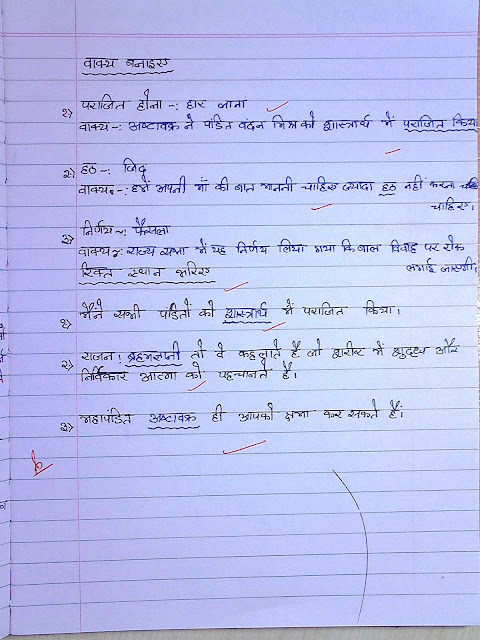 वाक्य बनाइए
१) पराजित होना -: हार जाना
वाक्य -: अष्टावक्र ने पंडित वंदन मिश्र को शास्त्रार्थ में पराजित किया
२) हठ -: जिद्
वाक्य -: हमें अपनी माँ की बात माननी चाहिए ज्यादा हठ नहीं करना
चाहिए।
३) निर्णय -: फैसला
वाक्य -: राज्य सभा में यह निर्णय लिया गया कि बाल विवाह पर रोक
लगाई जाएगी।
रिक्त स्थान भरिए
१) मैंने सभी पंडितों को शास्त्रार्थ में पराजित किया।
२) राजन! ब्रह्मज्ञानी तो वे कहलाते हैं जो शरीर में शुद्ध और
निर्विकार आत्मा को पहचानते है।
३) महापंडित अष्टावक्र ही आपको क्षमा कर सकते हैं।